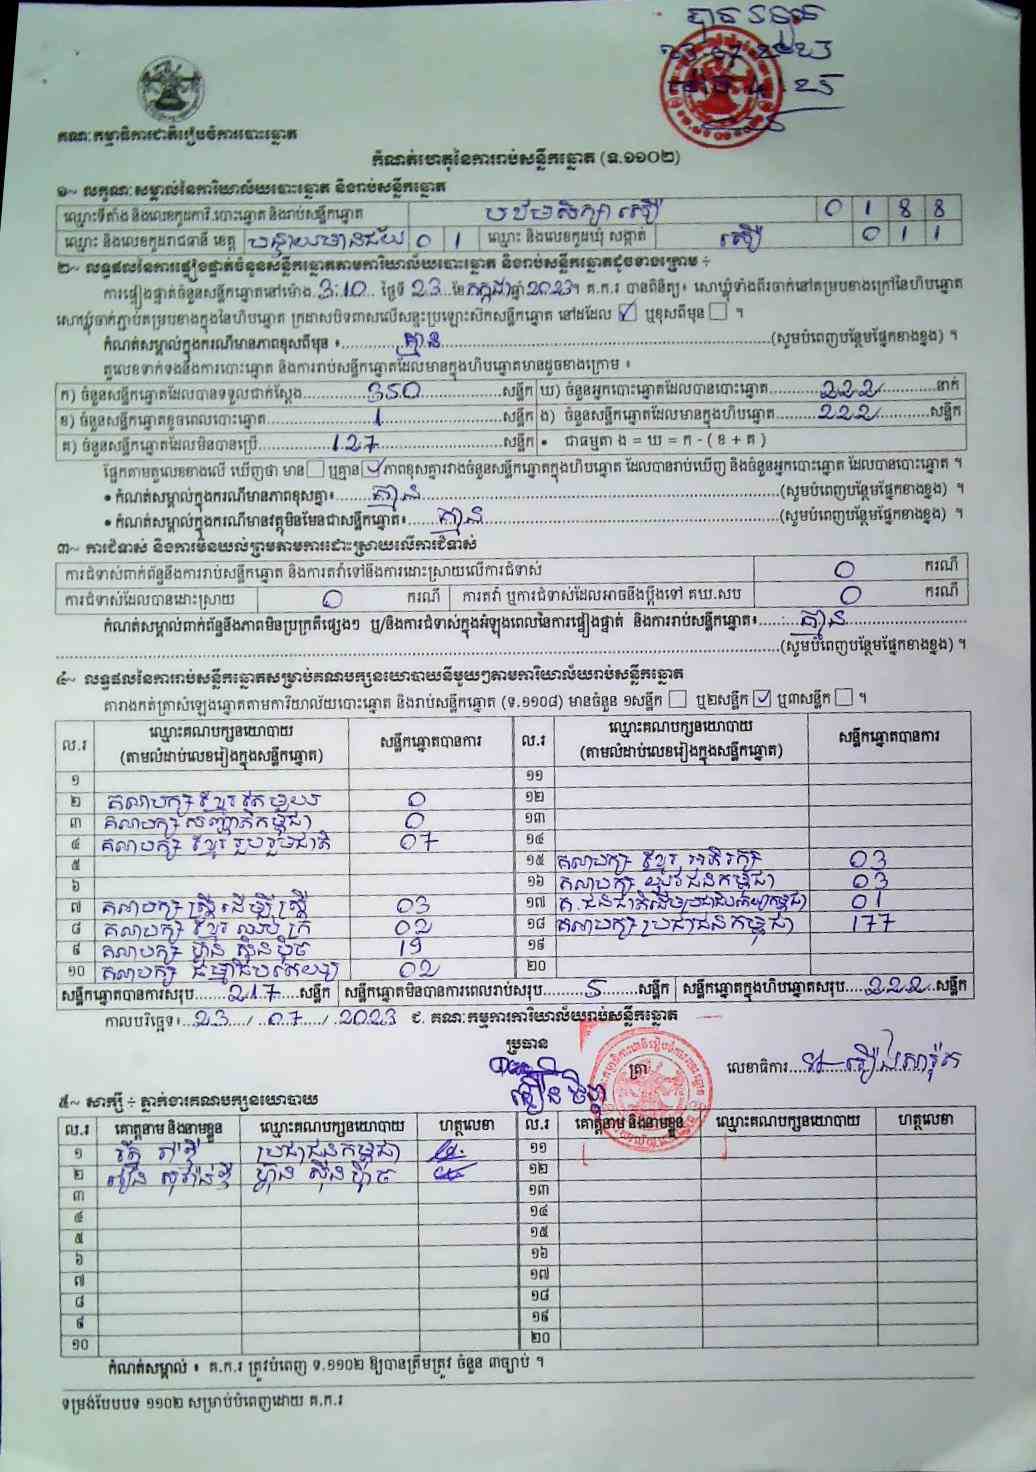 បាន
គណៈកម្មាធិការជាតិរៀបចំការបោះឆ្នោត
កំណត់ហេតុនៃការរាប់សន្លឹកឆ្នោត (ទ.១១០២)
១~ លក្ខណៈសម្គាល់នៃការិយាល័យបោះឆ្នោត និងរាប់សន្លឹកឆ្នោត
ឈ្មោះទីតាំង និងលេខកូដការិ.បោះឆ្នោត និងរាប់សន្លឹកឆ្នោត បឋមសិក្សា 0 1 8 8
ឈ្មោះ និងលេខកូដរាជធានី ខេត្ត បន្ទាយមានជ័យ 0 1 ឈ្មោះ និងលេខកូដឃុំ សង្កាត់ 0 1 1
២~ លទ្ធផលនៃការផ្ទៀងផ្ទាត់ចំនួនសន្លឹកឆ្នោតតាមការិយាល័យបោះឆ្នោត និងរាប់សន្លឹកឆ្នោតដូចខាងក្រោម ÷
ការផ្ទៀងផ្ទាត់ចំនួនសន្លឹកឆ្នោតនៅម៉ោង 3:10 ថ្ងៃទី 23 ខែ កក្កដា ឆ្នាំ 2023 ។ គ.ក.រ បានពិនិត្យ៖ សោឃ្លុំទាំងពីរចាក់នៅគម្របខាងក្រៅនៃហិបឆ្នោត
សោឃ្លុំចាក់ភ្ជាប់គម្របខាងក្នុងនៃហិបឆ្នោត ក្រដាសបិទពាសលើសន្ទះប្រឡោះសិកសន្លឹកឆ្នោត នៅដដែល ☑ ឬខុសពីមុន ☐ ។
កំណត់សម្គាល់ក្នុងករណីមានភាពខុសពីមុន ៖ គ្មាន (សូមបំពេញបន្ថែមផ្នែកខាងខ្នង) ។
តួលេខទាក់ទងនឹងការបោះឆ្នោត និងការរាប់សន្លឹកឆ្នោតដែលមានក្នុងហិបឆ្នោតមានដូចខាងក្រោម ៖
ក) ចំនួនសន្លឹកឆ្នោតដែលបានទទួលជាក់ស្តែង 350 សន្លឹក ឃ) ចំនួនអ្នកបោះឆ្នោតដែលបានបោះឆ្នោត 222 នាក់
ខ) ចំនួនសន្លឹកឆ្នោតខូចពេលបោះឆ្នោត 1 សន្លឹក ង) ចំនួនសន្លឹកឆ្នោតដែលមានក្នុងហិបឆ្នោត 222 សន្លឹក
គ) ចំនួនសន្លឹកឆ្នោតដែលមិនបានប្រើ 127 សន្លឹក • ជាធម្មតា ង = ឃ = ក - ( ខ + គ )
ផ្អែកតាមតួលេខខាងលើ ឃើញថា មាន ☐ ឬគ្មាន ☑ ភាពខុសគ្នារវាងចំនួនសន្លឹកឆ្នោតក្នុងហិបឆ្នោត ដែលបានរាប់ឃើញ និងចំនួនអ្នកបោះឆ្នោត ដែលបានបោះឆ្នោត ។
• កំណត់សម្គាល់ក្នុងករណីមានភាពខុសគ្នា៖ គ្មាន (សូមបំពេញបន្ថែមផ្នែកខាងខ្នង) ។
• កំណត់សម្គាល់ក្នុងករណីមានវត្ថុមិនមែនជាសន្លឹកឆ្នោត៖ គ្មាន (សូមបំពេញបន្ថែមផ្នែកខាងខ្នង) ។
៣~ ការជំទាស់ និងការមិនយល់ព្រមតាមការដោះស្រាយលើការជំទាស់
ការជំទាស់ពាក់ព័ន្ធនឹងការរាប់សន្លឹកឆ្នោត និងការតវ៉ាទៅនឹងការដោះស្រាយលើការជំទាស់ 0 ករណី
ការជំទាស់ដែលបានដោះស្រាយ 0 ករណី ការតវ៉ា ឬការជំទាស់ដែលអាចនឹងប្តឹងទៅ គឃ.សប 0 ករណី
កំណត់សម្គាល់ពាក់ព័ន្ធនឹងភាពមិនប្រក្រតីផ្សេងៗ ឬ/និងការជំទាស់ក្នុងអំឡុងពេលនៃការផ្ទៀងផ្ទាត់ និងការរាប់សន្លឹកឆ្នោត៖ គ្មាន
(សូមបំពេញបន្ថែមផ្នែកខាងខ្នង) ។
៤~ លទ្ធផលនៃការរាប់សន្លឹកឆ្នោតសម្រាប់គណបក្សនយោបាយនីមួយៗតាមការិយាល័យរាប់សន្លឹកឆ្នោត
តារាងកត់ត្រាសំឡេងឆ្នោតតាមការិយាល័យបោះឆ្នោត និងរាប់សន្លឹកឆ្នោត (ទ.១១០៨) មានចំនួន ១សន្លឹក ☐ ឬ២សន្លឹក ☑ ឬ៣សន្លឹក ☐ ។
ល.រ ឈ្មោះគណបក្សនយោបាយ (តាមលំដាប់លេខរៀងក្នុងសន្លឹកឆ្នោត) សន្លឹកឆ្នោតបានការ ល.រ ឈ្មោះគណបក្សនយោបាយ (តាមលំដាប់លេខរៀងក្នុងសន្លឹកឆ្នោត) សន្លឹកឆ្នោតបានការ
១ ១១
២ គណបក្ស ខ្មែរតែមួយ 0 ១២
៣ គណបក្ស សញ្ជាតិកម្ពុជា 0 ១៣
៤ គណបក្ស ខ្មែរ រួបរួមជាតិ 07 ១៤
៥ ១៥ គណបក្ស ខ្មែរ អភិរក្ស 03
៦ ១៦ គណបក្ស យុវជនកម្ពុជា 03
៧ គណបក្ស ស្ត្រីដើម្បីស្ត្រី 03 ១៧ គ.ជនជាតិដើមប្រជាធិបតេយ្យកម្ពុជា 01
៨ គណបក្ស ខ្មែរ ឈប់ក្រ 02 ១៨ គណបក្ស ប្រជាជនកម្ពុជា 177
៩ គណបក្ស ហ្វ៊ុនស៊ិនប៉ិច 19 ១៩
១០ គណបក្ស ធម្មាធិបតេយ្យ 02 ២០
សន្លឹកឆ្នោតបានការសរុប 217 សន្លឹក សន្លឹកឆ្នោតមិនបានការពេលរាប់សរុប 5 សន្លឹក សន្លឹកឆ្នោតក្នុងហិបឆ្នោតសរុប 222 សន្លឹក
កាលបរិច្ឆេទ៖ 23 / 07 / 2023 ជ. គណៈកម្មការការិយាល័យរាប់សន្លឹកឆ្នោត
ប្រធាន ត្រា លេខាធិការ
៥~ សាក្សី ÷ ភ្នាក់ងារគណបក្សនយោបាយ
ល.រ គោត្តនាម និងនាមខ្លួន ឈ្មោះគណបក្សនយោបាយ ហត្ថលេខា ល.រ គោត្តនាម និងនាមខ្លួន ឈ្មោះគណបក្សនយោបាយ ហត្ថលេខា
១ ប្រជាជនកម្ពុជា ១១
២ ហ្វ៊ុនស៊ិនប៉ិច ១២
៣ ១៣
៤ ១៤
៥ ១៥
៦ ១៦
៧ ១៧
៨ ១៨
៩ ១៩
១០ ២០
កំណត់សម្គាល់ ៖ គ.ក.រ ត្រូវបំពេញ ទ.១១០២ ឱ្យបានត្រឹមត្រូវ ចំនួន ៣ច្បាប់ ។
ទម្រង់បែបបទ ១១០២ សម្រាប់បំពេញដោយ គ.ក.រ